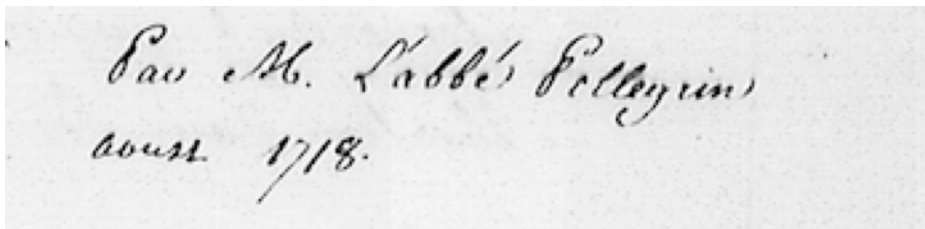 Par M. L'abbé Pellegrin
aoust 1718.